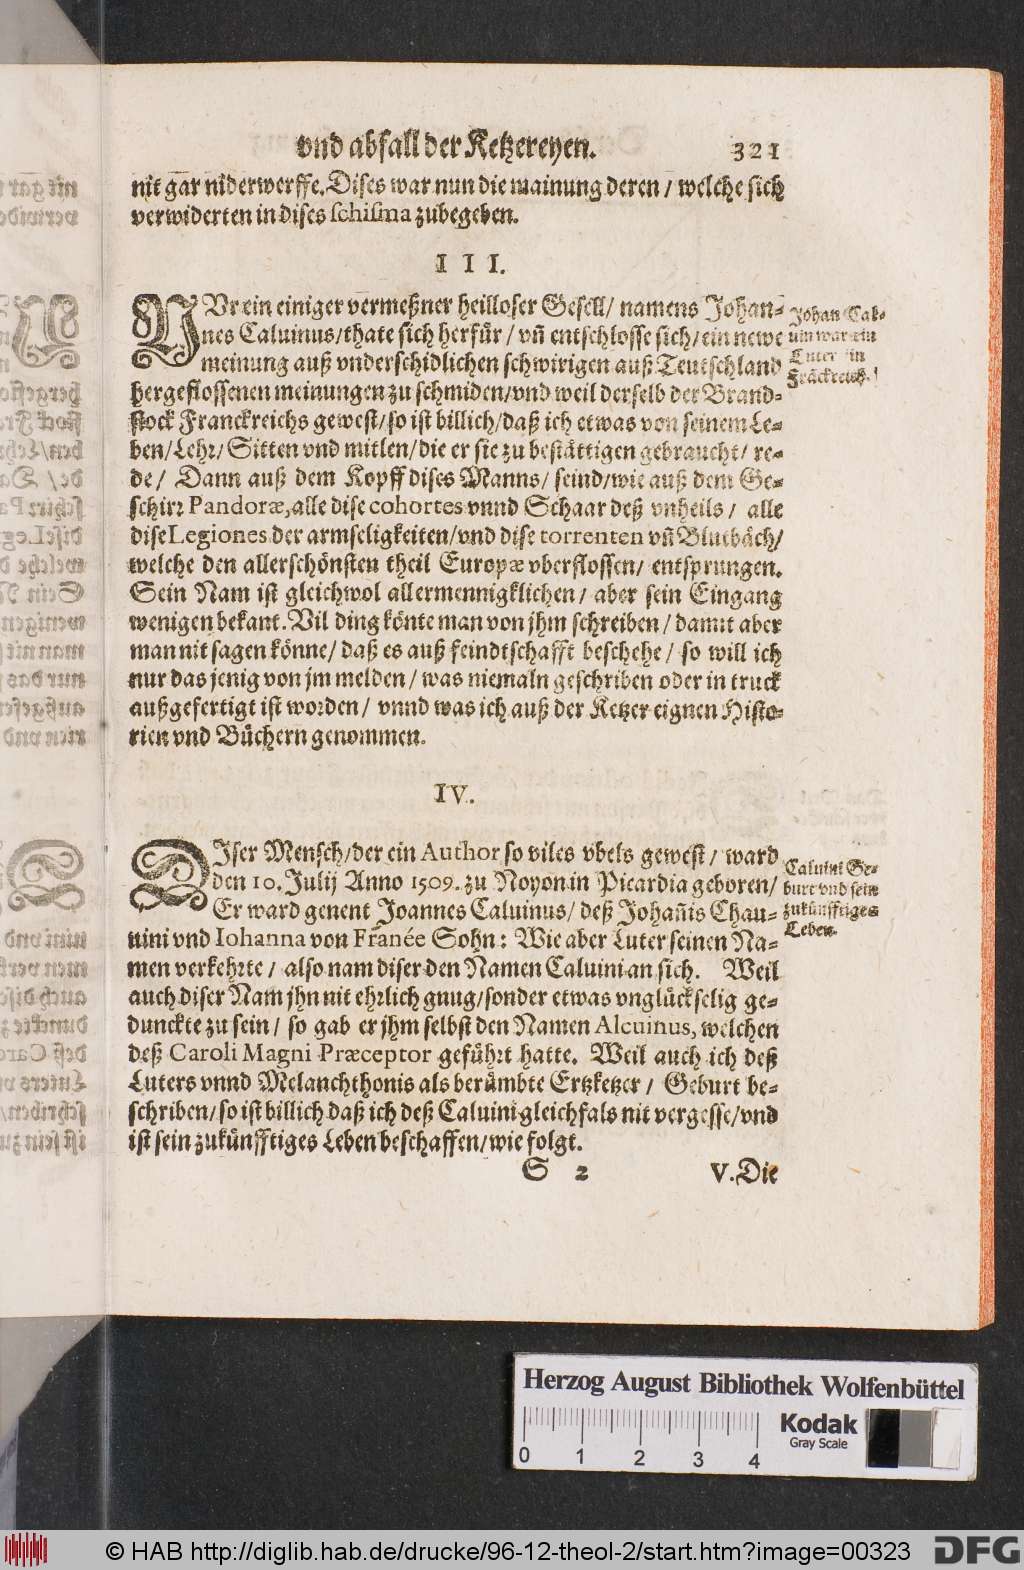 vnd abfall der Ketzereyen. 321
nit gar niderwerffe. Dises war nun die mainung deren / welche sich
verwiderten in dises schisma zubegeben.
III.
NVr ein einiger vermeßner heilloser Gesell / namens Johan-
nes Caluinus / thate sich herfür / vn̄ entschlosse sich / ein newe
meinung auß vnderschidlichen schwirigen auß Teutschland
hergeflossenen meinungen zu schmiden / vnd weil derselb der Brand-
stock Franckreichs gewest / so ist billich / daß ich etwas von seinem Le-
ben / Lehr / Sitten vnd mitlen / die er sie zu bestättigen gebraucht / re-
de / Dann auß dem Kopff dises Manns / seind / wie auß dem Ge-
schirr Pandoræ, alle dise cohortes vnnd Schaar deß vnheils / alle
dise Legiones der armseligkeiten / vnd dise torrenten vn̄ Blutbäch /
welche den allerschönsten theil Europæ vberflossen / entsprungen.
Sein Nam ist gleichwol allermennigklichen / aber sein Eingang
wenigen bekant. Vil ding könte man von jhm schreiben / damit aber
man nit sagen könne / daß es auß feindtschafft beschehe / so will ich
nur das jenig von jm melden / was niemaln geschriben oder in truck
außgefertigt ist worden / vnnd was ich auß der Ketzer eignen Histo-
rien vnd Büchern genommen.
Johan Cal-
uin war ein
Luter in
Frāckreich.
IV.
DIser Mensch / der ein Author so viles vbels gewest / ward
den 10. Julij Anno 1509. zu Noyon in Picardia geboren /
Er ward genent Joannes Caluinus / deß Johan̄is Chau-
uini vnd Iohanna von Franée Sohn: Wie aber Luter seinen Na-
men verkehrte / also nam diser den Namen Caluini an sich. Weil
auch diser Nam jhn nit ehrlich gnug / sonder etwas vnglückselig ge-
dunckte zu sein / so gab er jhm selbst den Namen Alcuinus, welchen
deß Caroli Magni Præceptor geführt hatte. Weil auch ich deß
Luters vnnd Melanchthonis als berümbte Ertzketzer / Geburt be-
schriben / so ist billich daß ich deß Caluini gleichfals nit vergesse / vnd
ist sein zukünfftiges Leben beschaffen / wie folgt.
Caluini Ge-
burt vnd sein
zukünfftiges
Leben.
S 2 V. Die
Herzog August Bibliothek Wolfenbüttel
Kodak
Gray Scale
0 1 2 3 4
© HAB http://diglib.hab.de/drucke/96-12-theol-2/start.htm?image=00323
DFG